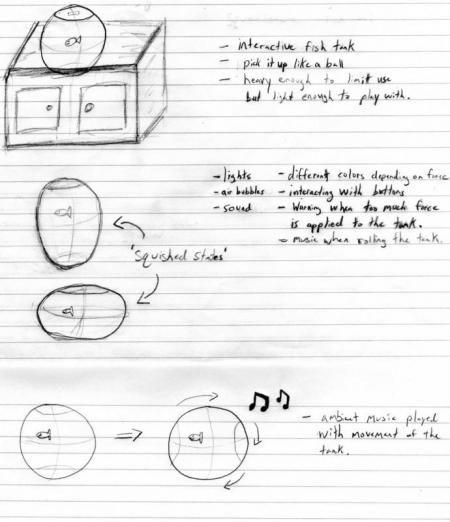 - interactive fish tank
- pick it up like a ball
- heavy enough to limit use
but light enough to play with.
- lights
- air bubbles
- sound
- different colors depending on force
- interacting with buttons
- Warning when too much force
is applied to the tank.
- music when rolling the tank.
"Squished States"
- ambient music played
with movement of the
tank.